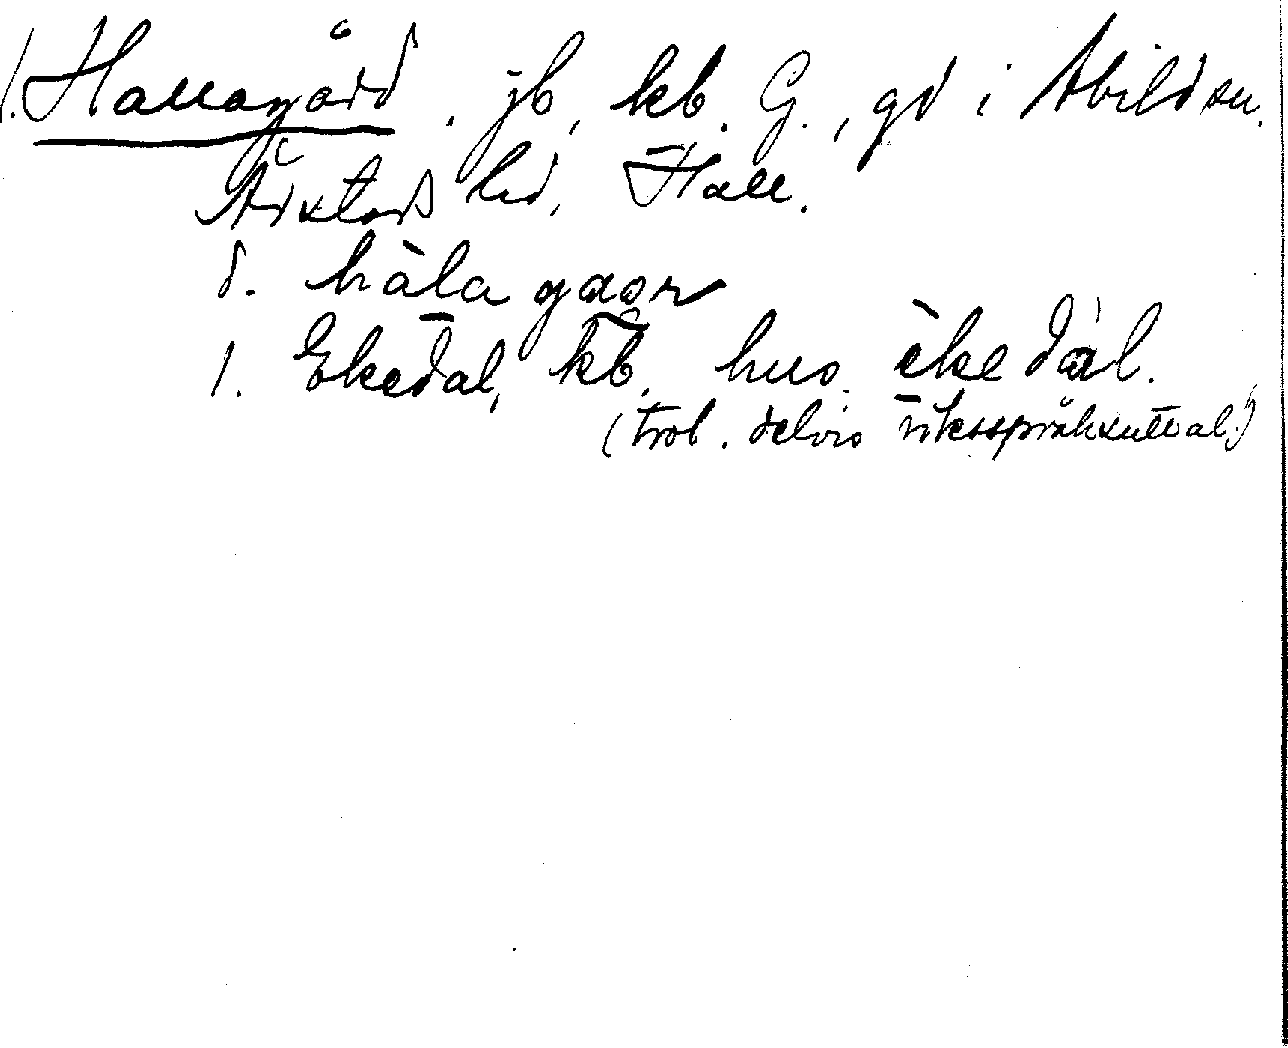 1. Hallagård. jb, kb. G., gd i Abild sn.
Årstads hd, Hall.
d. hàla gaor
1. Ekedal, kb. hus. èkedàl.
(trol. delvis riksspråksuttal?)